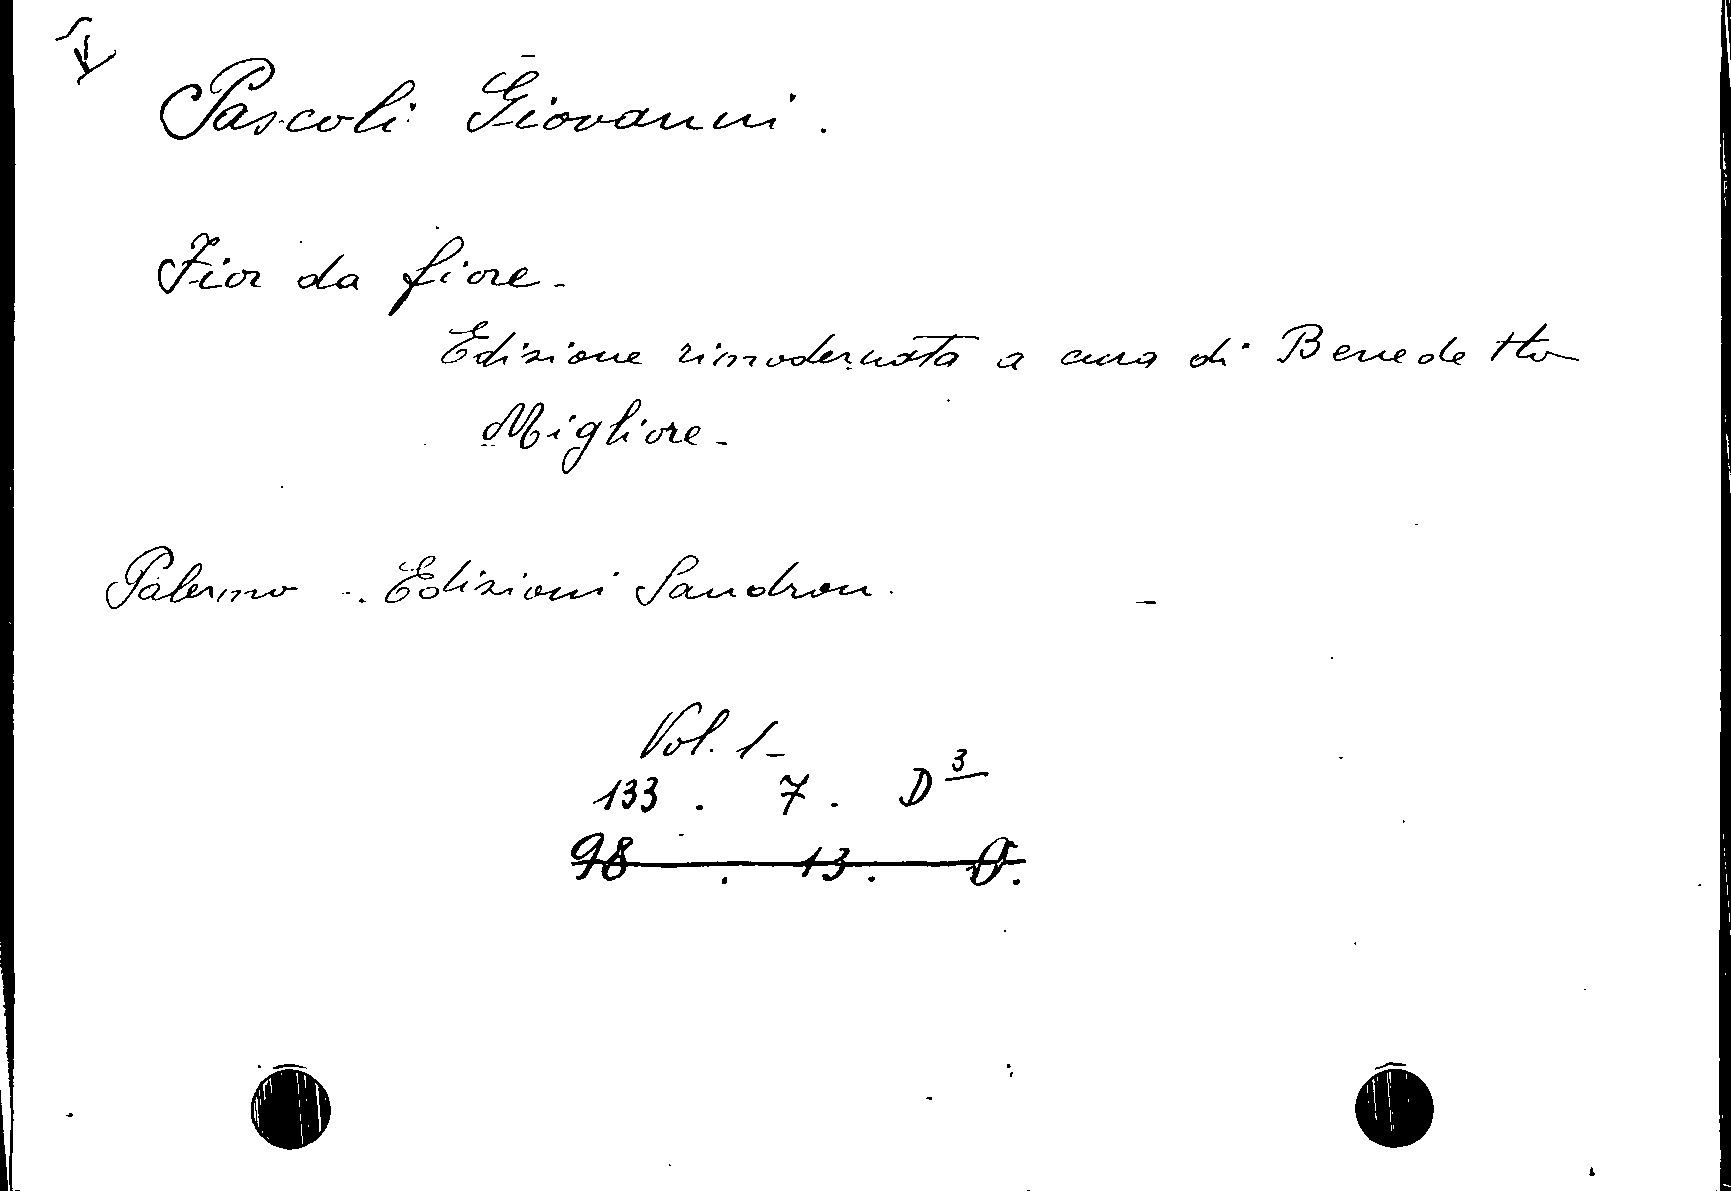 Pascoli Giovanni.
Fior da fiore -
Edizione rimodernata a cura di Benedetto
Migliore -
Palermo - Edizioni Sandron.
Vol. 1 -
133 . 7 . D 3
98 . 13 . D.